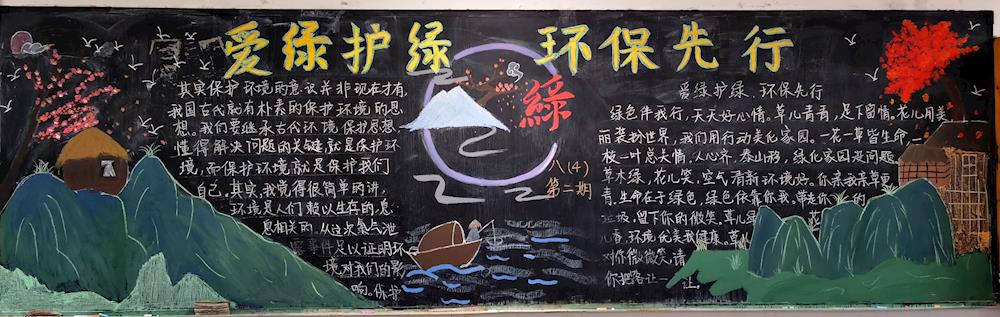 爱绿护绿 环保先行
其实保护环境的意识并非现在才有,
我国古代就有朴素的保护环境的思
想。我们要继承古代环境保护思想
懂得解决问题的关键就是保护环
境,而保护环境就是保护我们
自己,其实,我觉得很简单的讲,
环境是人们赖以生存的,息
息相关的,从这次氯气泄
事件足以证明环
境对我们的影
响。保护
綠
八(4)
第二期
爱绿护绿、环保先行
绿色伴我行,天天好心情。草儿青青,足下留情。花儿用美
丽装扮世界,我们用行动美化家园。一花一草皆生命,一
枝一叶总关情。人心齐,泰山移,绿化家园没问题
草木绿,花儿笑,空气清新环境好。你来我来草更
青。生命在于绿色,绿色依靠你我。带走你的
垃圾,留下你的微笑。草儿绿 花
儿香,环境优美我健康。草儿
对你微微笑,请
你把路让一让。